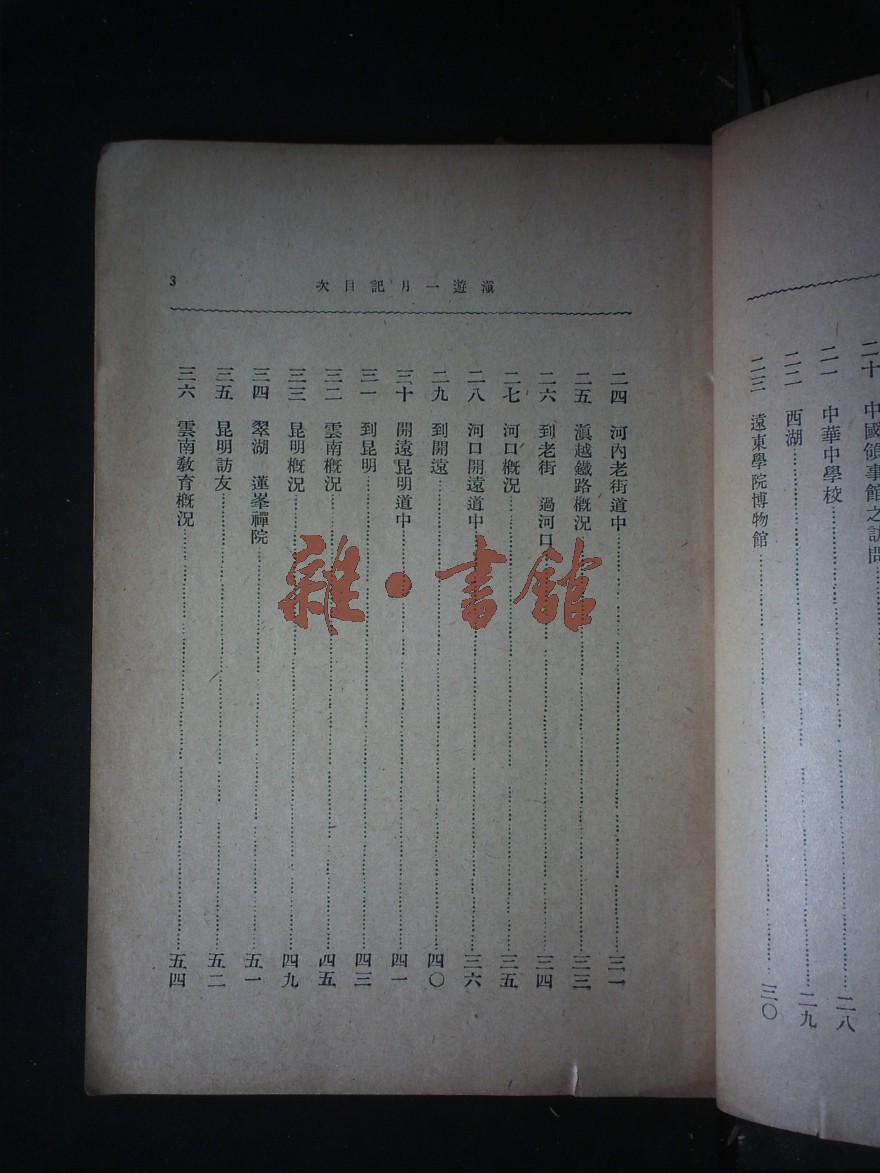 二十 中國領事館之訪問
二一 中華中學校 二八
二二 西湖 二九
二三 遠東學院博物館 三〇
滇遊一月記目次 3
二四 河內老街道中 三一
二五 滇越鐵路概況 三三
二六 到老街 過河口 三四
二七 河口概況 三五
二八 河口開遠道中 三六
二九 到開遠 四〇
三十 開遠昆明道中 四一
三一 到昆明 四三
三二 雲南概況 四五
三三 昆明概況 四九
三四 翠湖 蓮峯禪院 五一
三五 昆明訪友 五二
三六 雲南教育概況 五四
雜·書館